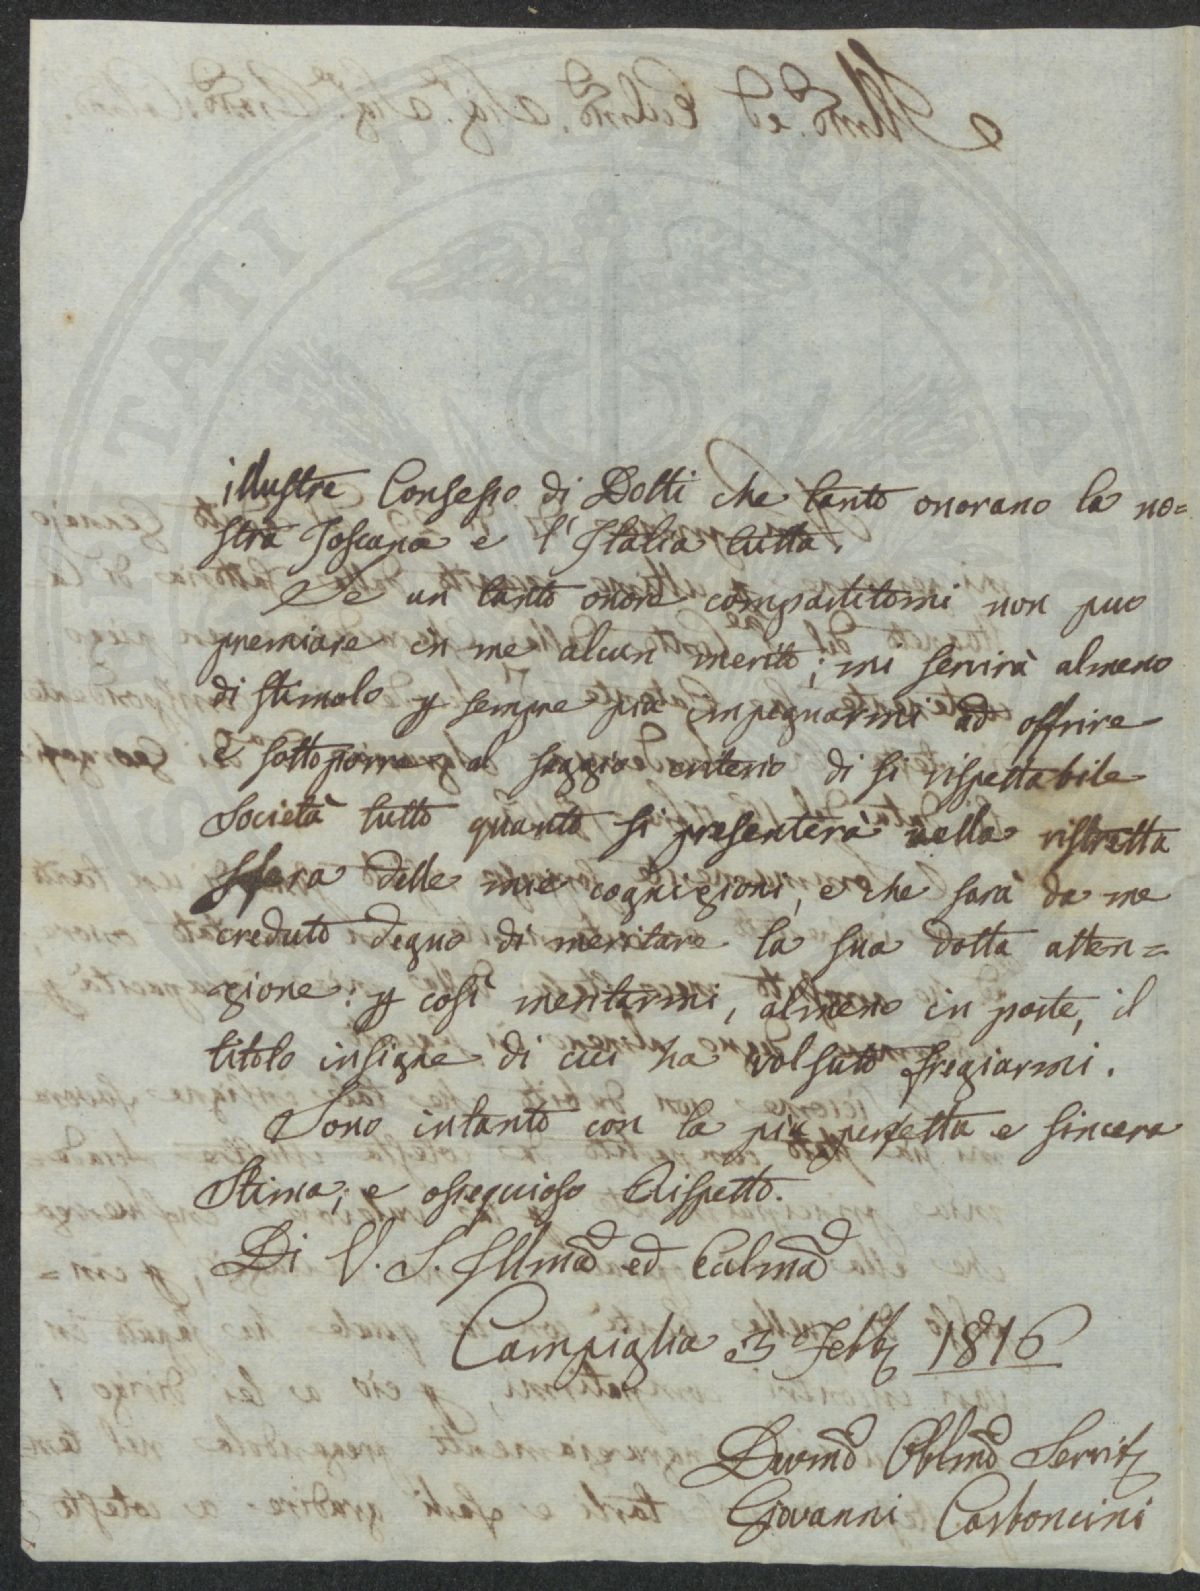 illustre Consesso di Dotti che tanto onorano la no=
stra Toscana e l'Italia tutta.
Se un tanto onore compartitomi non può
premiare in me alcun merito; mi servirà almeno
di stimolo p sempre più impegnarmi ad offrire
e sottoporre al saggio criterio di si rispettabile
Società tutto quanto si presenterà nella ristretta
sfera delle mie cognizioni, e che sarà da me
creduto degno di meritare la sua dotta atten=
zione: p così meritarmi, almeno in parte, il
titolo insigne di cui ha volsuto fregiarmi.
Sono intanto con la più perfetta e sincera
Stima; e ossequioso Rispetto.
Di V. S. Illma ed Eccma
Campiglia 3 Febb 1816
Devmo Obblmo Servit
Giovanni Carboncini